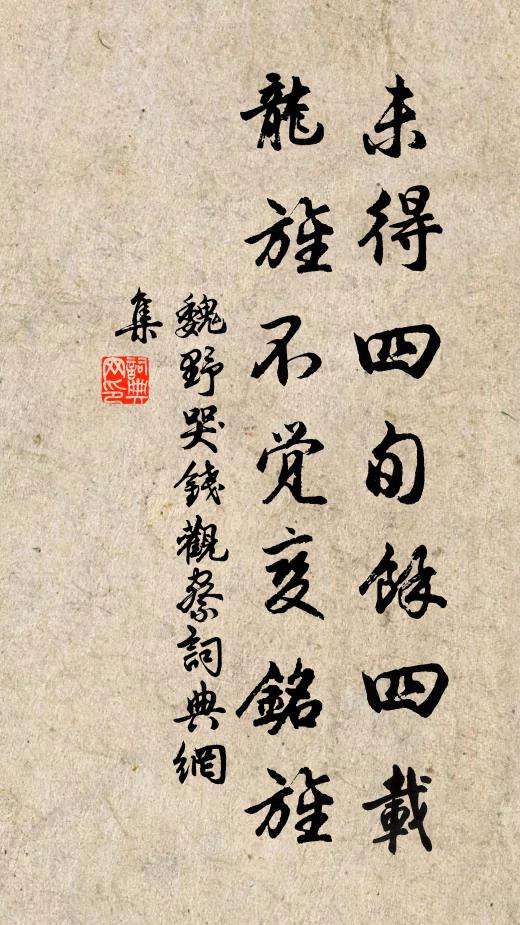 未得四旬餘四載
龍旌不觉变銘旌
魏野哭錢觀察詞典網
集
詞典
网印